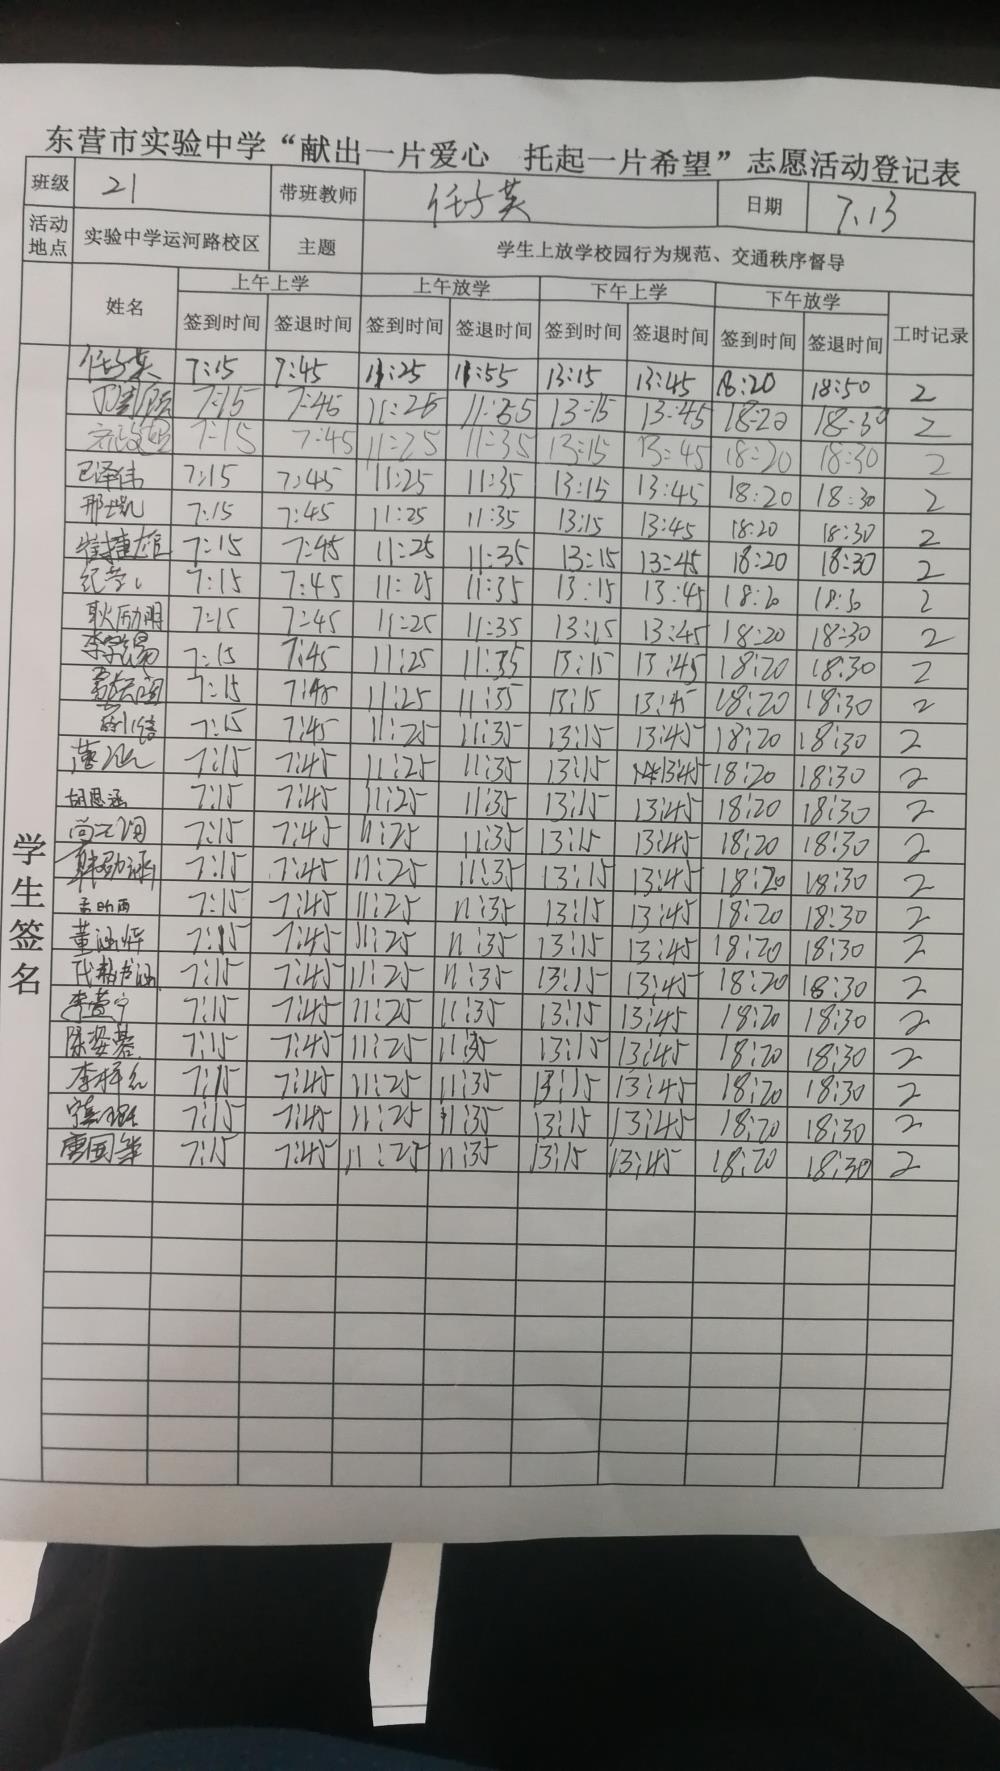 东营市实验中学“献出一片爱心 托起一片希望”志愿活动登记表
班级 21 带班教师 任子英 日期 7.13
活动地点 实验中学运河路校区 主题 学生上放学校园行为规范、交通秩序督导
姓名 上午上学 上午放学 下午上学 下午放学 工时记录
签到时间 签退时间 签到时间 签退时间 签到时间 签退时间 签到时间 签退时间
学生签名
任子英 7:15 7:45 11:25 11:55 13:15 13:45 18:20 18:50 2
7:15 7:45 11:25 11:35 13:15 13:45 18:20 18:30 2
7:15 7:45 11:25 11:35 13:15 13:45 18:20 18:30 2
巴泽伟 7:15 7:45 11:25 11:35 13:15 13:45 18:20 18:30 2
邢凯 7:15 7:45 11:25 11:35 13:15 13:45 18:20 18:30 2
崔捷雄 7:15 7:45 11:25 11:35 13:15 13:45 18:20 18:30 2
7:15 7:45 11:25 11:35 13:15 13:45 18:20 18:30 2
耿励明 7:15 7:45 11:25 11:35 13:15 13:45 18:20 18:30 2
7:15 7:45 11:25 11:35 13:15 13:45 18:20 18:30 2
7:15 7:45 11:25 11:35 13:15 13:45 18:20 18:30 2
7:15 7:45 11:25 11:35 13:15 13:45 18:20 18:30 2
7:15 7:45 11:25 11:35 13:15 13:45 18:20 18:30 2
胡恩涵 7:15 7:45 11:25 11:35 13:15 13:45 18:20 18:30 2
7:15 7:45 11:25 11:35 13:15 13:45 18:20 18:30 2
韩劭涵 7:15 7:45 11:25 11:35 13:15 13:45 18:20 18:30 2
7:15 7:45 11:25 11:35 13:15 13:45 18:20 18:30 2
董涵烨 7:15 7:45 11:25 11:35 13:15 13:45 18:20 18:30 2
7:15 7:45 11:25 11:35 13:15 13:45 18:20 18:30 2
李萱宁 7:15 7:45 11:25 11:35 13:15 13:45 18:20 18:30 2
陈姿蓉 7:15 7:45 11:25 11:35 13:15 13:45 18:20 18:30 2
7:15 7:45 11:25 11:35 13:15 13:45 18:20 18:30 2
7:15 7:45 11:25 11:35 13:15 13:45 18:20 18:30 2
唐国华 7:15 7:45 11:25 11:35 13:15 13:45 18:20 18:30 2